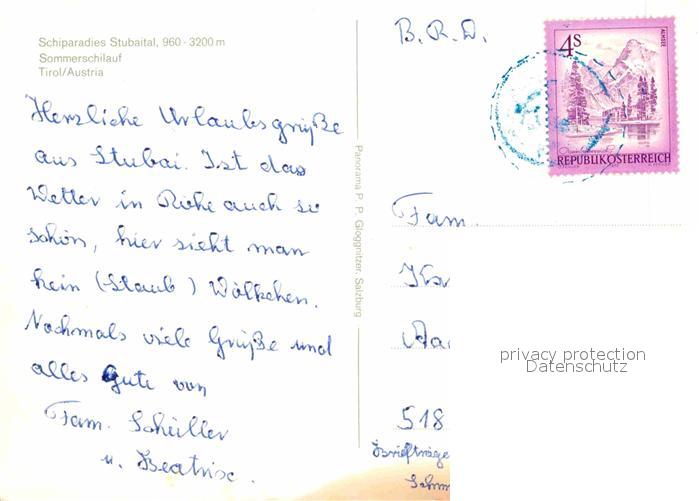 Schiparadies Stubaital, 960 - 3200 m
Sommerschilauf
Tirol/Austria
Herzliche Urlaubsgrüße
aus Stubai. Ist das
Wetter in Ruhe auch so
schön, hier sieht man
kein (Staub) Wölkchen.
Nochmals viele Grüße und
alles Gute von
Fam. Schüller
u. Beatrix.
Panorama P. P. Gloggnitzer, Salzburg
B. R. D.
4S
ALMSEE
REPUBLIK ÖSTERREICH
Fam.
518
Briefträge
privacy protection
Datenschutz